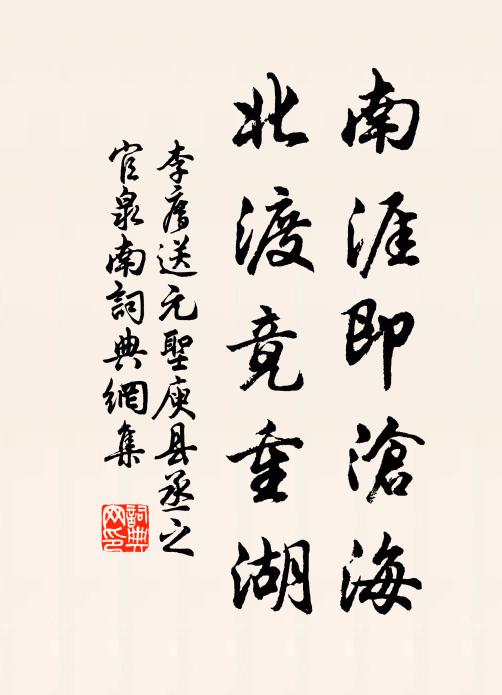 南涯即滄海
北渡竟重湖
李廌送元聖庾县丞之
官泉南詞典網集
詞典
网印